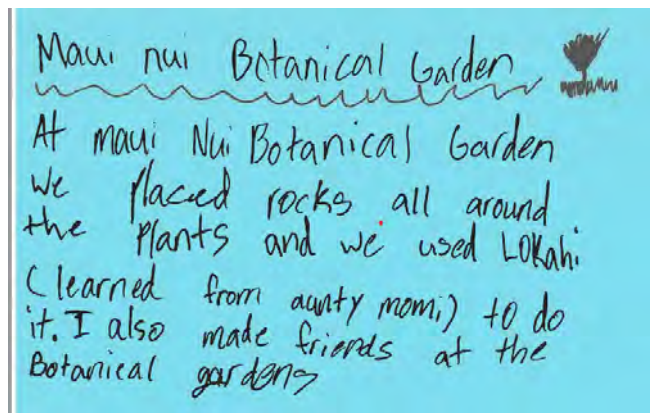 Maui nui Botanical Garden
At maui Nui Botanical Garden
we placed rocks all around
the plants and we used LOKahi
(learned from aunty momi) to do
it. I also made friends at the
Botanical gardens